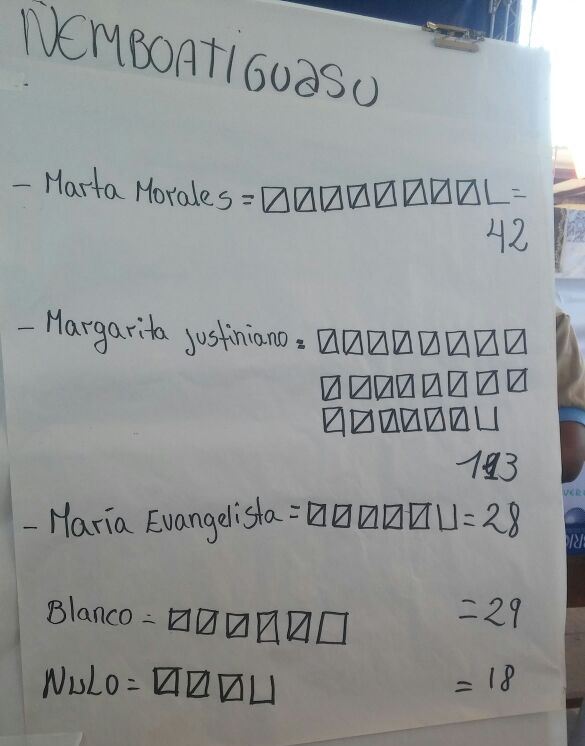 ÑEMBOATI GUASU
- Marta Morales = =
42
- Margarita Justiniano =
113
- María Evangelista = = 28
Blanco = = 29
NuLO = = 18